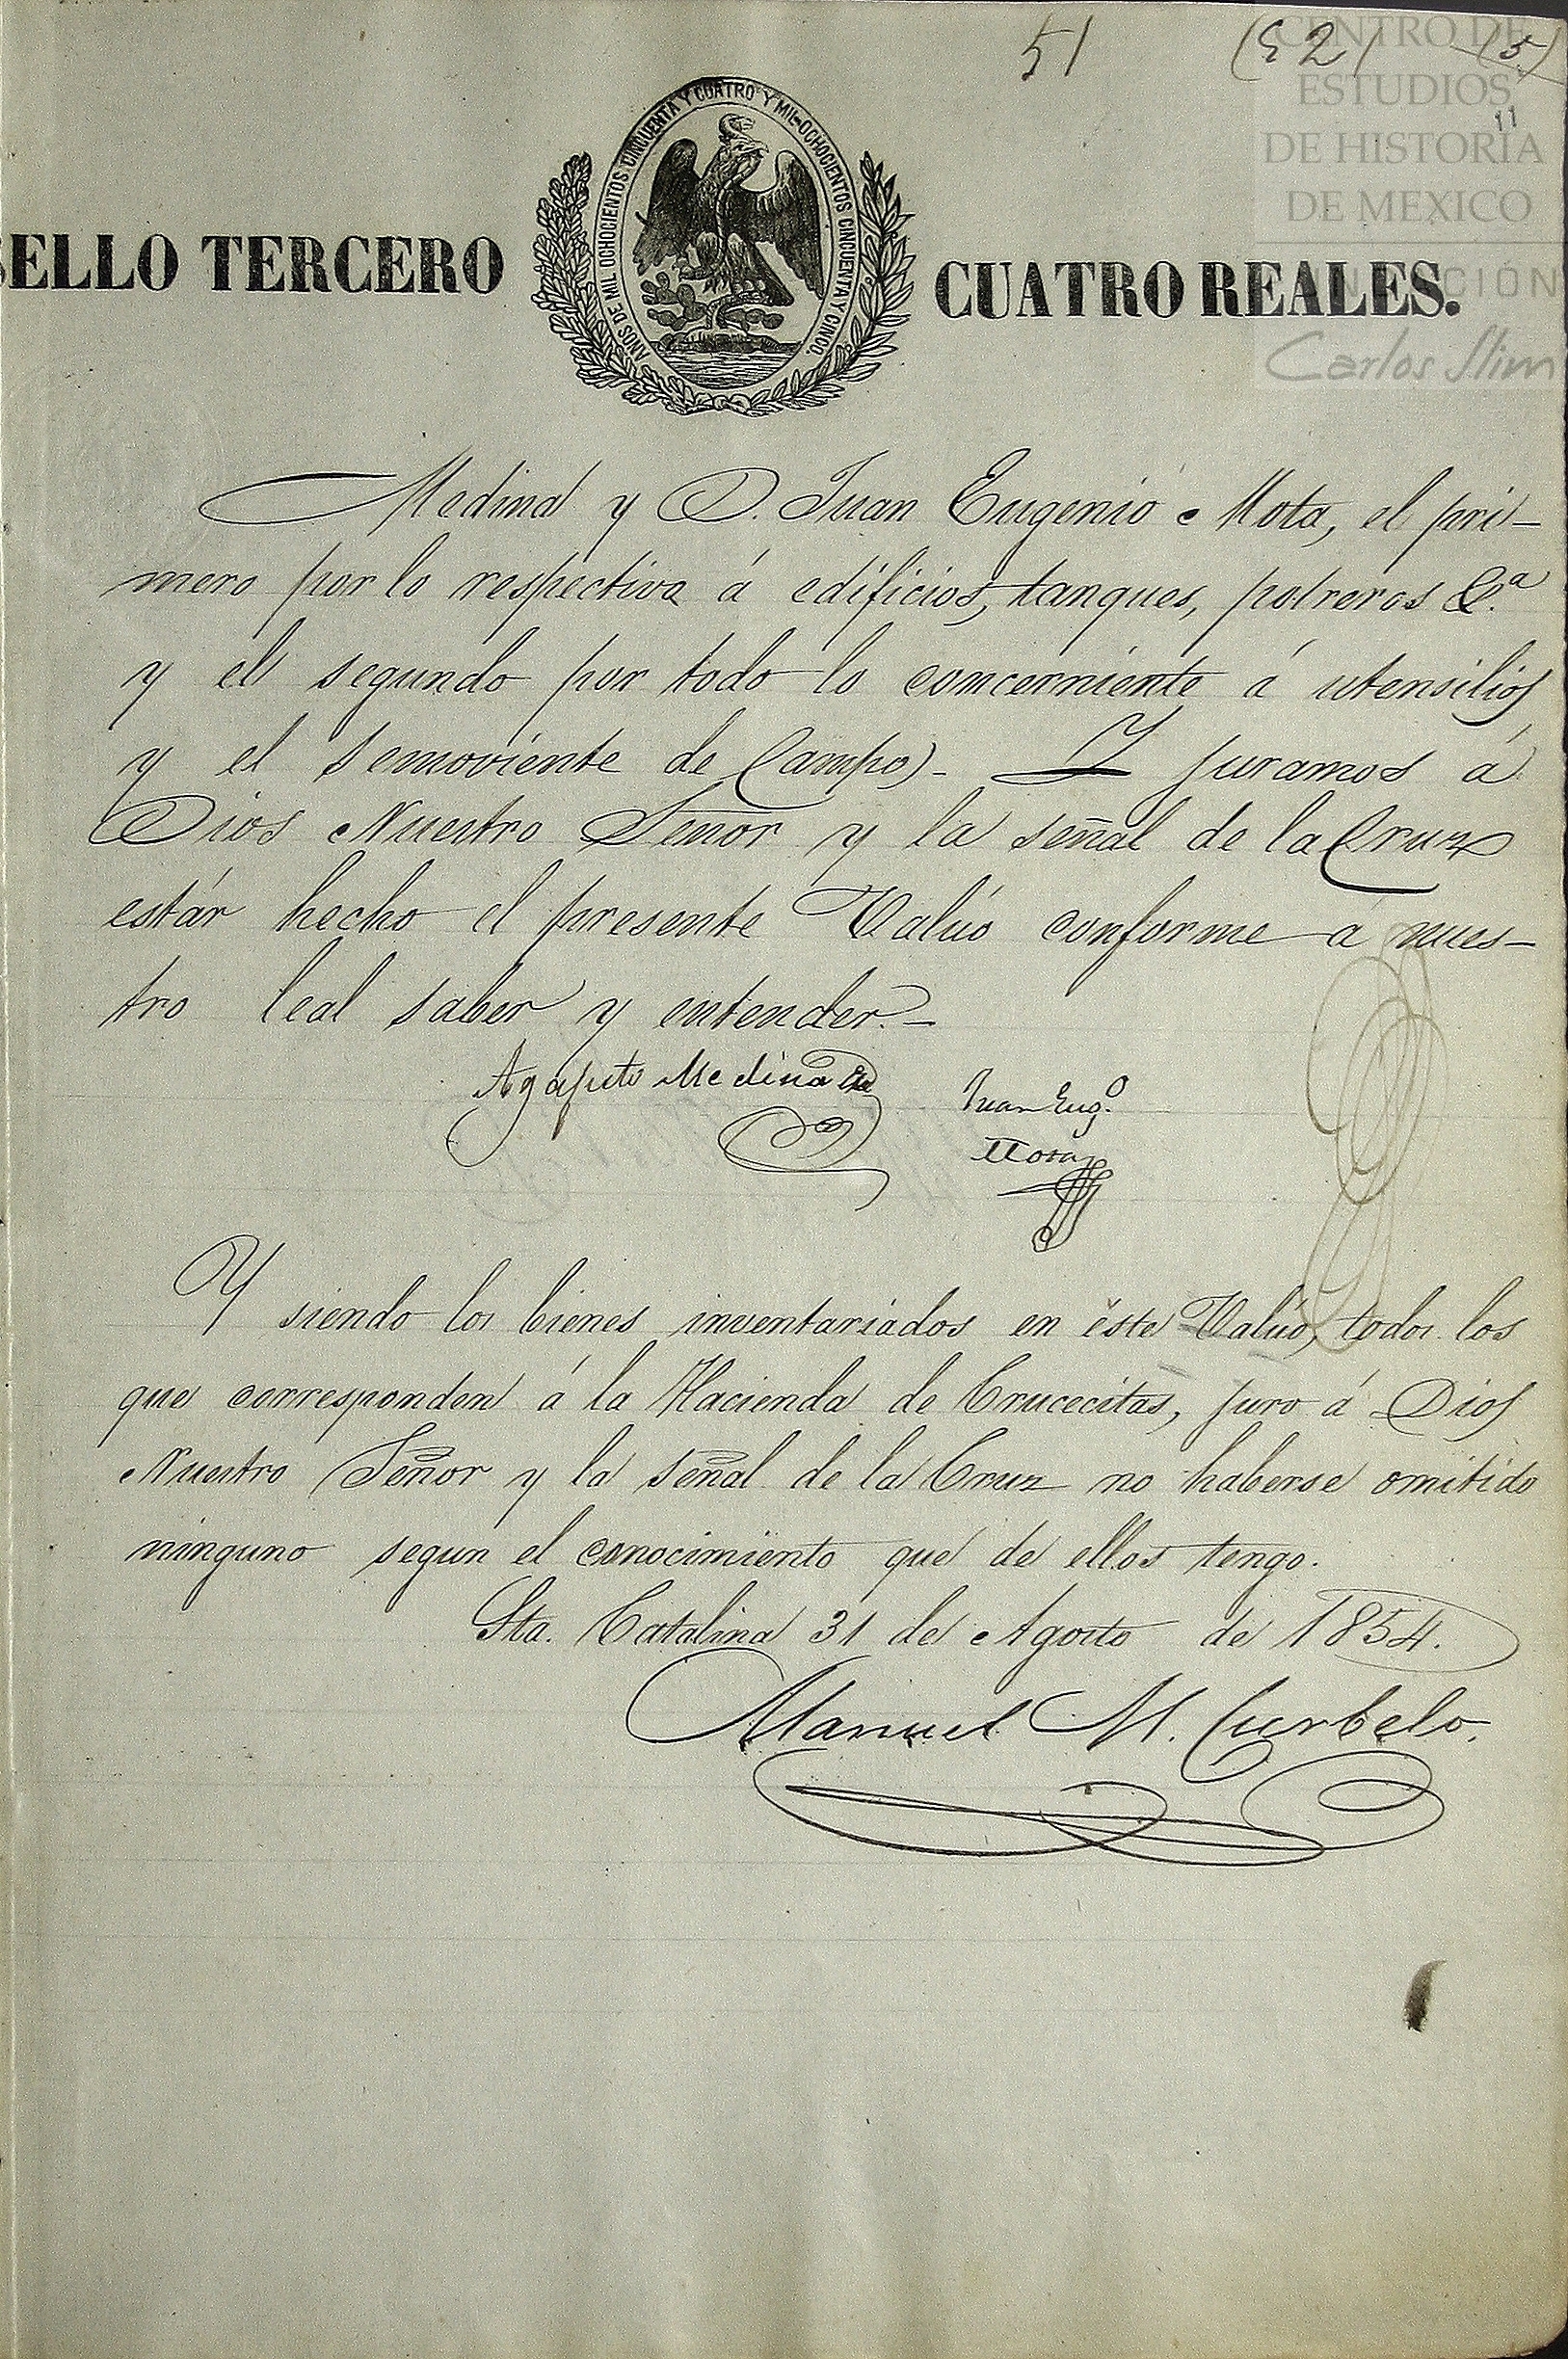 51 (52) (5)
11
CENTRO DE
ESTUDIOS
DE HISTORIA
DE MEXICO
FUNDACIÓN
Carlos Slim
SELLO TERCERO
AÑOS DE MIL OCHOCIENTOS CINCUENTA Y CUATRO Y MIL OCHOCIENTOS CINCUENTA Y CINCO.
CUATRO REALES.
Medina y D. Juan Eugenio Mota, el pri-
mero por lo respectivo á edificios, tanques, potreros &.a
y el segundo por todo lo concerniente á utensilios
y el semoviente de Campo). Y juramos á
Dios Nuestro Señor y la señal de la Cruz
estár hecho el presente Valúo conforme á nues-
tro leal saber y entender.-
Agapito Medina
Juan Eug.o
Mota
Y siendo los bienes inventariados en éste Valúo, todos los
que corresponden á la Hacienda de Crucecitas, juro á Dios
Nuestro Señor y la señal de la Cruz no haberse omitido
ninguno segun el conocimiento que de ellos tengo.
Sta. Catalina 31 de Agosto de 1854.
Manuel M. Curbelo.